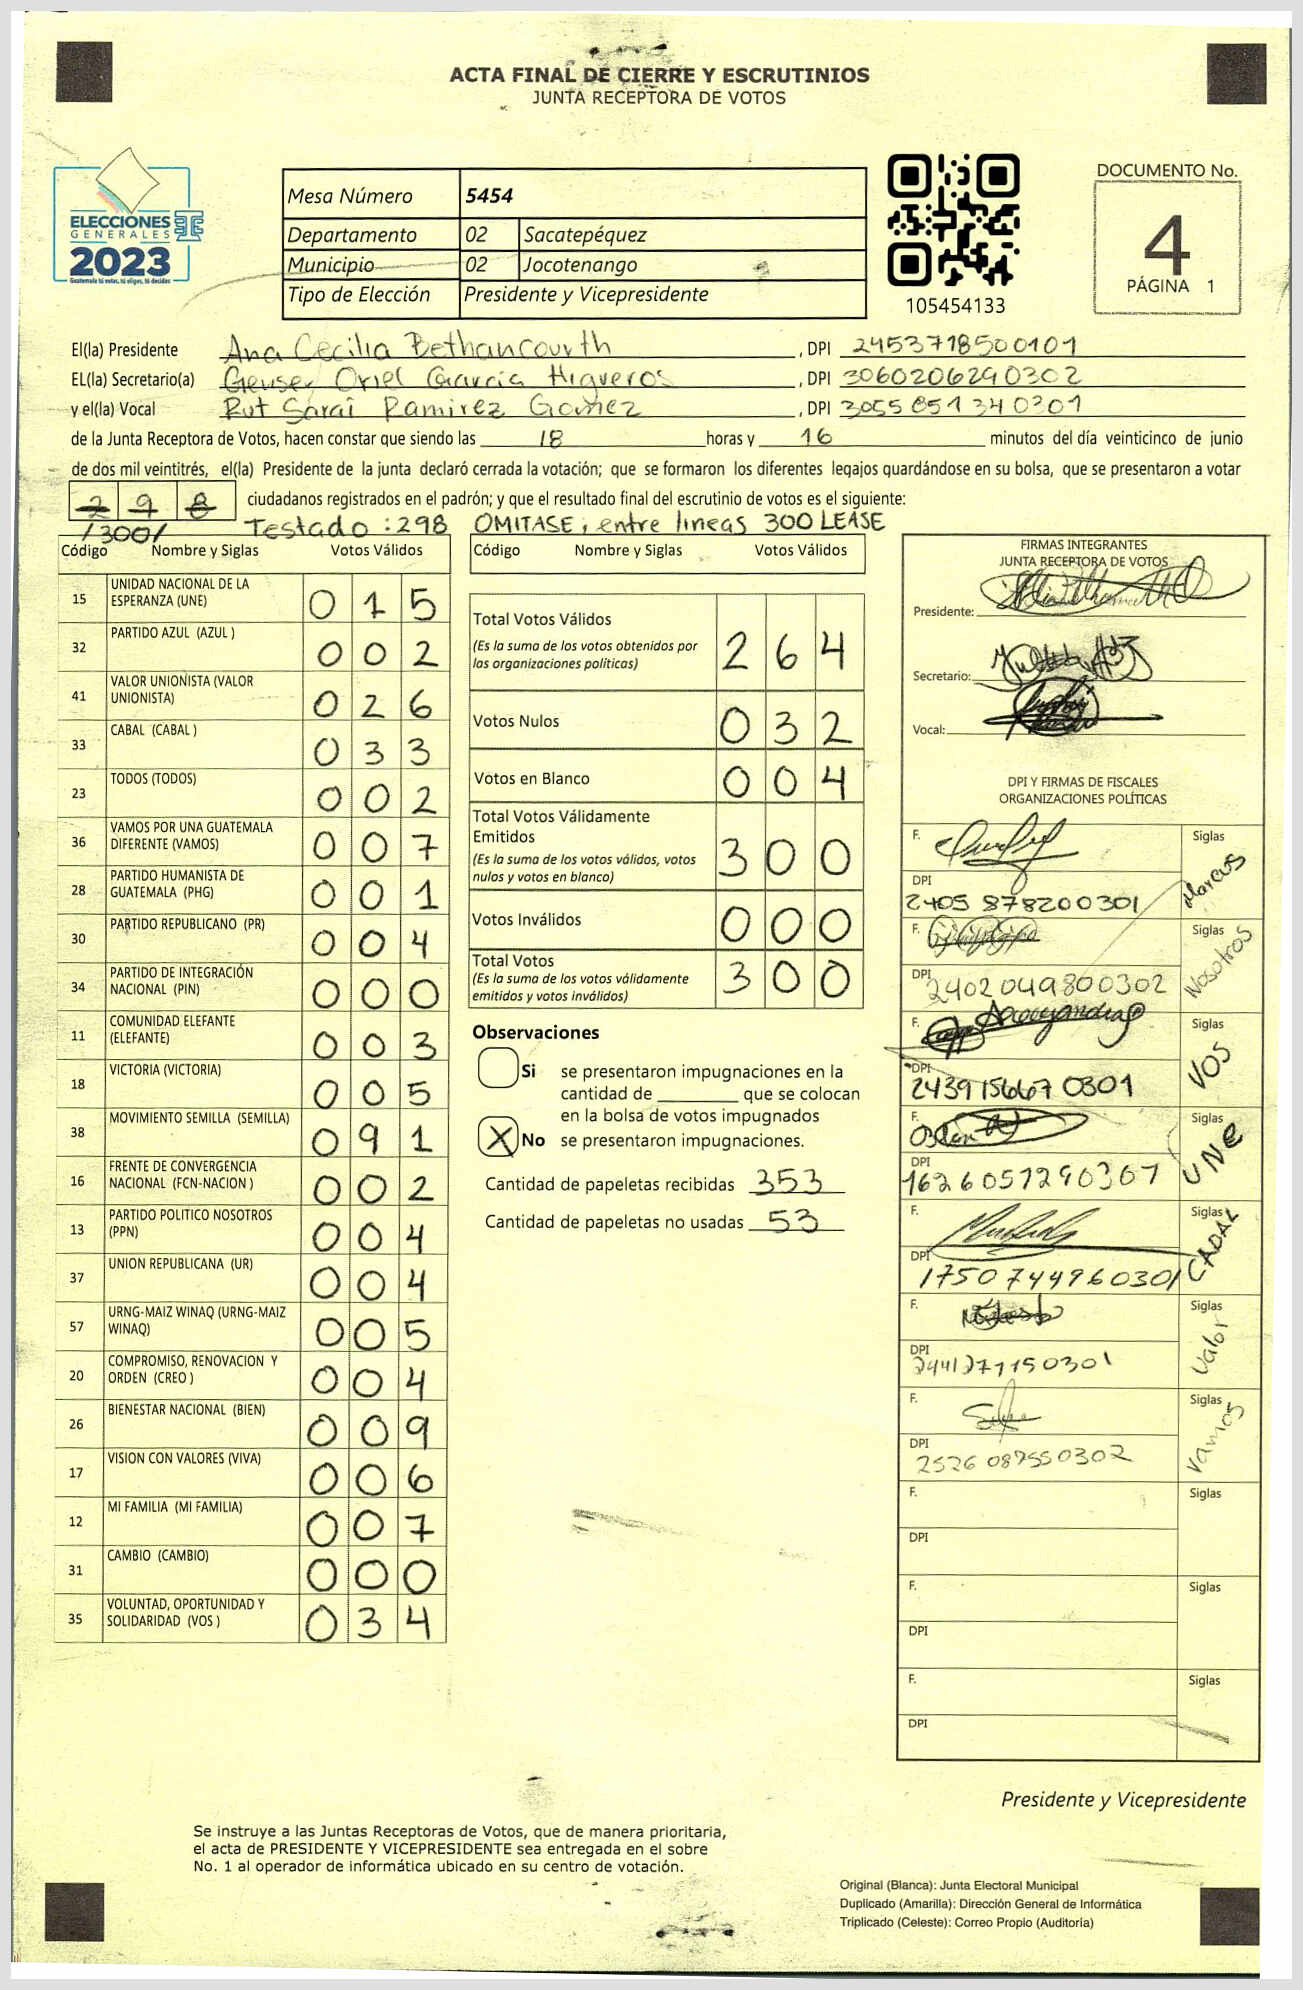 ACTA FINAL DE CIERRE Y ESCRUTINIOS
JUNTA RECEPTORA DE VOTOS
ELECCIONES
GENERALES
2023
Guatemala tú votas, tú eliges, tú decides
Mesa Número 5454
Departamento 02 Sacatepéquez
Municipio 02 Jocotenango
Tipo de Elección Presidente y Vicepresidente
105454133
DOCUMENTO No.
4
PÁGINA 1
El(la) Presidente Ana Cecilia Bethancourth, DPI 2453718500101
EL(la) Secretario(a) Geuser Oriel García Higueros, DPI 3060206290302
y el(la) Vocal Rut Saraí Ramirez Gomez, DPI 3055851340301
de la Junta Receptora de Votos, hacen constar que siendo las 18 horas y 16 minutos del día veinticinco de junio
de dos mil veintitrés, el(la) Presidente de la junta declaró cerrada la votación; que se formaron los diferentes legajos guardándose en su bolsa, que se presentaron a votar
298 ciudadanos registrados en el padrón; y que el resultado final del escrutinio de votos es el siguiente:
/300/ Testado : 298 OMITASE, entre lineas 300 LEASE
Código Nombre y Siglas Votos Válidos
15 UNIDAD NACIONAL DE LA
ESPERANZA (UNE) 015
32 PARTIDO AZUL (AZUL ) 002
41 VALOR UNIONISTA (VALOR
UNIONISTA) 026
33 CABAL (CABAL ) 033
23 TODOS (TODOS) 002
36 VAMOS POR UNA GUATEMALA
DIFERENTE (VAMOS) 007
28 PARTIDO HUMANISTA DE
GUATEMALA (PHG) 001
30 PARTIDO REPUBLICANO (PR) 004
34 PARTIDO DE INTEGRACIÓN
NACIONAL (PIN) 000
11 COMUNIDAD ELEFANTE
(ELEFANTE) 003
18 VICTORIA (VICTORIA) 005
38 MOVIMIENTO SEMILLA (SEMILLA) 091
16 FRENTE DE CONVERGENCIA
NACIONAL (FCN-NACION ) 002
13 PARTIDO POLITICO NOSOTROS
(PPN) 004
37 UNION REPUBLICANA (UR) 004
57 URNG-MAIZ WINAQ (URNG-MAIZ
WINAQ) 005
20 COMPROMISO, RENOVACION Y
ORDEN (CREO ) 004
26 BIENESTAR NACIONAL (BIEN) 009
17 VISION CON VALORES (VIVA) 006
12 MI FAMILIA (MI FAMILIA) 007
31 CAMBIO (CAMBIO) 000
35 VOLUNTAD, OPORTUNIDAD Y
SOLIDARIDAD (VOS ) 034
Código Nombre y Siglas Votos Válidos
Total Votos Válidos
(Es la suma de los votos obtenidos por
las organizaciones políticas) 264
Votos Nulos 032
Votos en Blanco 004
Total Votos Válidamente
Emitidos
(Es la suma de los votos válidos, votos
nulos y votos en blanco) 300
Votos Inválidos 000
Total Votos
(Es la suma de los votos válidamente
emitidos y votos inválidos) 300
Observaciones
Si se presentaron impugnaciones en la
cantidad de ________ que se colocan
en la bolsa de votos impugnados
X No se presentaron impugnaciones.
Cantidad de papeletas recibidas 353
Cantidad de papeletas no usadas 53
FIRMAS INTEGRANTES
JUNTA RECEPTORA DE VOTOS
Presidente:
Secretario:
Vocal:
DPI Y FIRMAS DE FISCALES
ORGANIZACIONES POLÍTICAS
F. Siglas
DPI
2405 878200301
F. Siglas Nosotros
DPI
2402049800302
F. Siglas VOS
DPI
2439156670301
F. Siglas UNE
DPI
1626057290307
F. Siglas
DPI
1750744960301
F. Siglas Valor
DPI
2441271150301
F. Siglas Vamos
DPI
2526087550302
F. Siglas
DPI
F. Siglas
DPI
F. Siglas
DPI
Presidente y Vicepresidente
Se instruye a las Juntas Receptoras de Votos, que de manera prioritaria,
el acta de PRESIDENTE Y VICEPRESIDENTE sea entregada en el sobre
No. 1 al operador de informática ubicado en su centro de votación.
Original (Blanca): Junta Electoral Municipal
Duplicado (Amarilla): Dirección General de Informática
Triplicado (Celeste): Correo Propio (Auditoría)